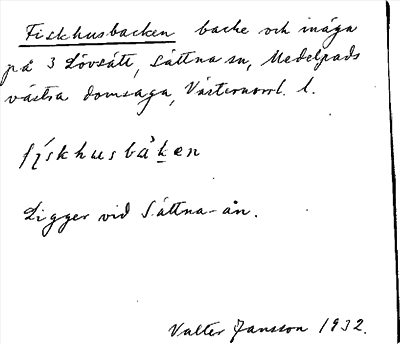 Fiskhusbacken backe och inäga
på 3 Lövsätt, Sättna sn, Medelpads
västra domsaga, Västernorrl. l.
fiskhusbàken
Ligger vid Sättna-ån.
Valter Jansson 1932.